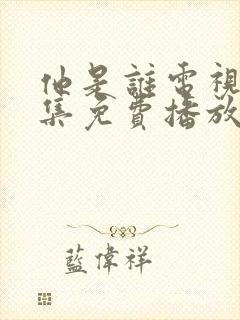 他是誰電視
集免費播放
藍偉祥